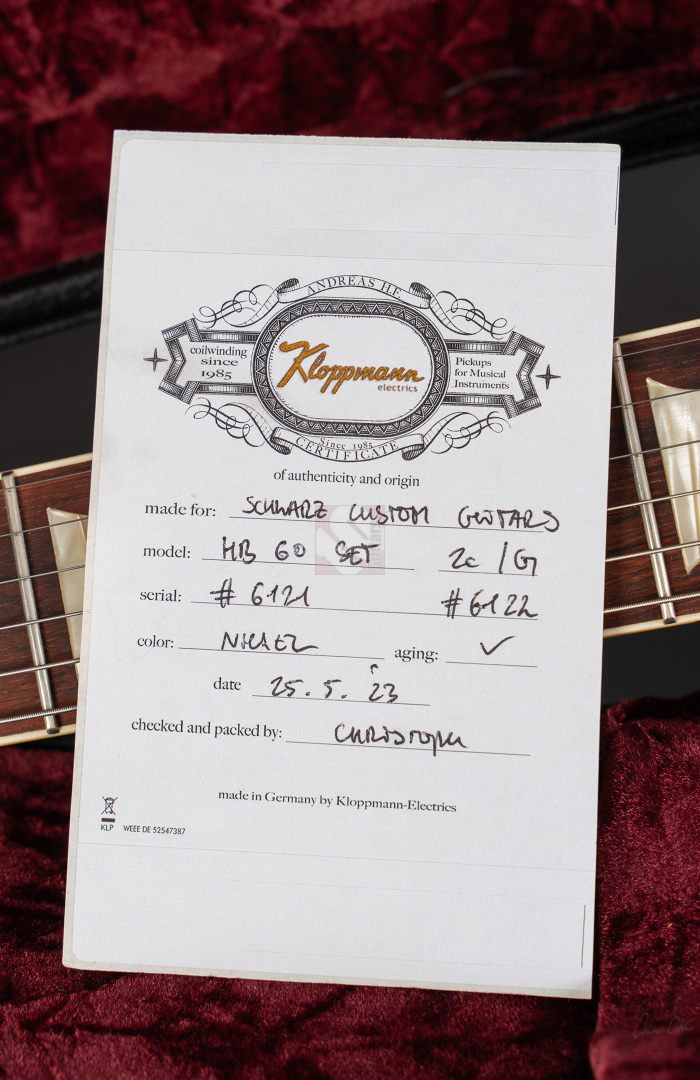 ANDREAS
coilwinding
since
1985
Kloppmann
electrics
Pickups
for Musical
Instruments
Since 1985
CERTIFICATE
of authenticity and origin
made for: SCHWARZ CUSTOM GUITARS
model: HB 60 SET 2c / G
serial: # 6121 # 6122
color: NICKEL aging: ✓
date 25. 5. 23
checked and packed by: CHRISTOPH
made in Germany by Kloppmann-Electrics
KLP WEEE DE 52547387